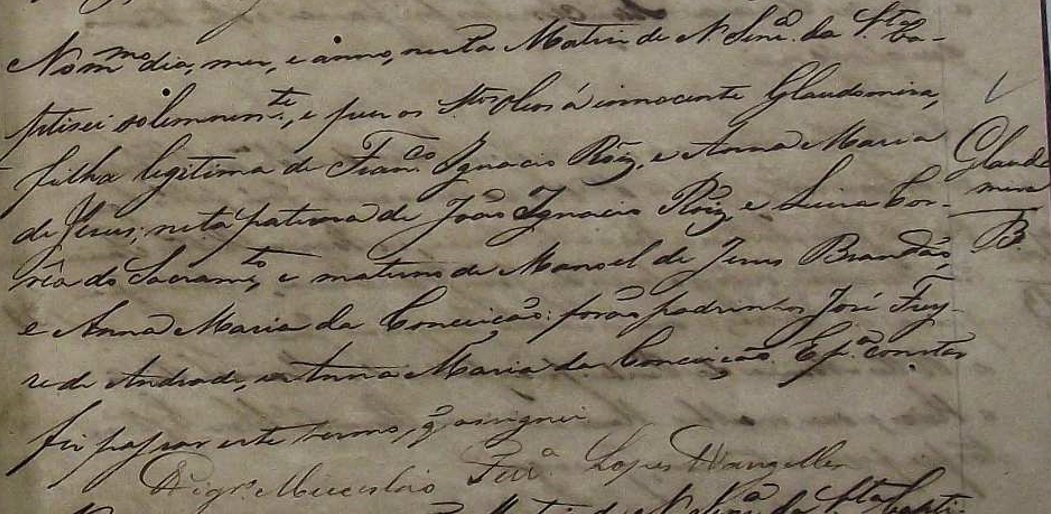 No mmo dia, mes, e anno, nesta Matriz de N. Snrã da Sta ba-
ptisei solemnemte, e puz os Stos Oleos á innocente Glaudomira,
filha legitima de Franco Ignacio Roiz, e Anna Maria
de Jesus; neta paterna de João Ignacio Roiz, e Luiza Cor-
rêa do Sacramto, e materna de Manoel de Jesus Brandão,
e Anna Maria da Conceição: forão padrinhos José Frey-
re de Andrade, e Anna Maria da Conceição. E pa constar
fiz passar este termo, q assignei
O Vigro Ferra Lopes Wangeller
Glaudo
mira
B.